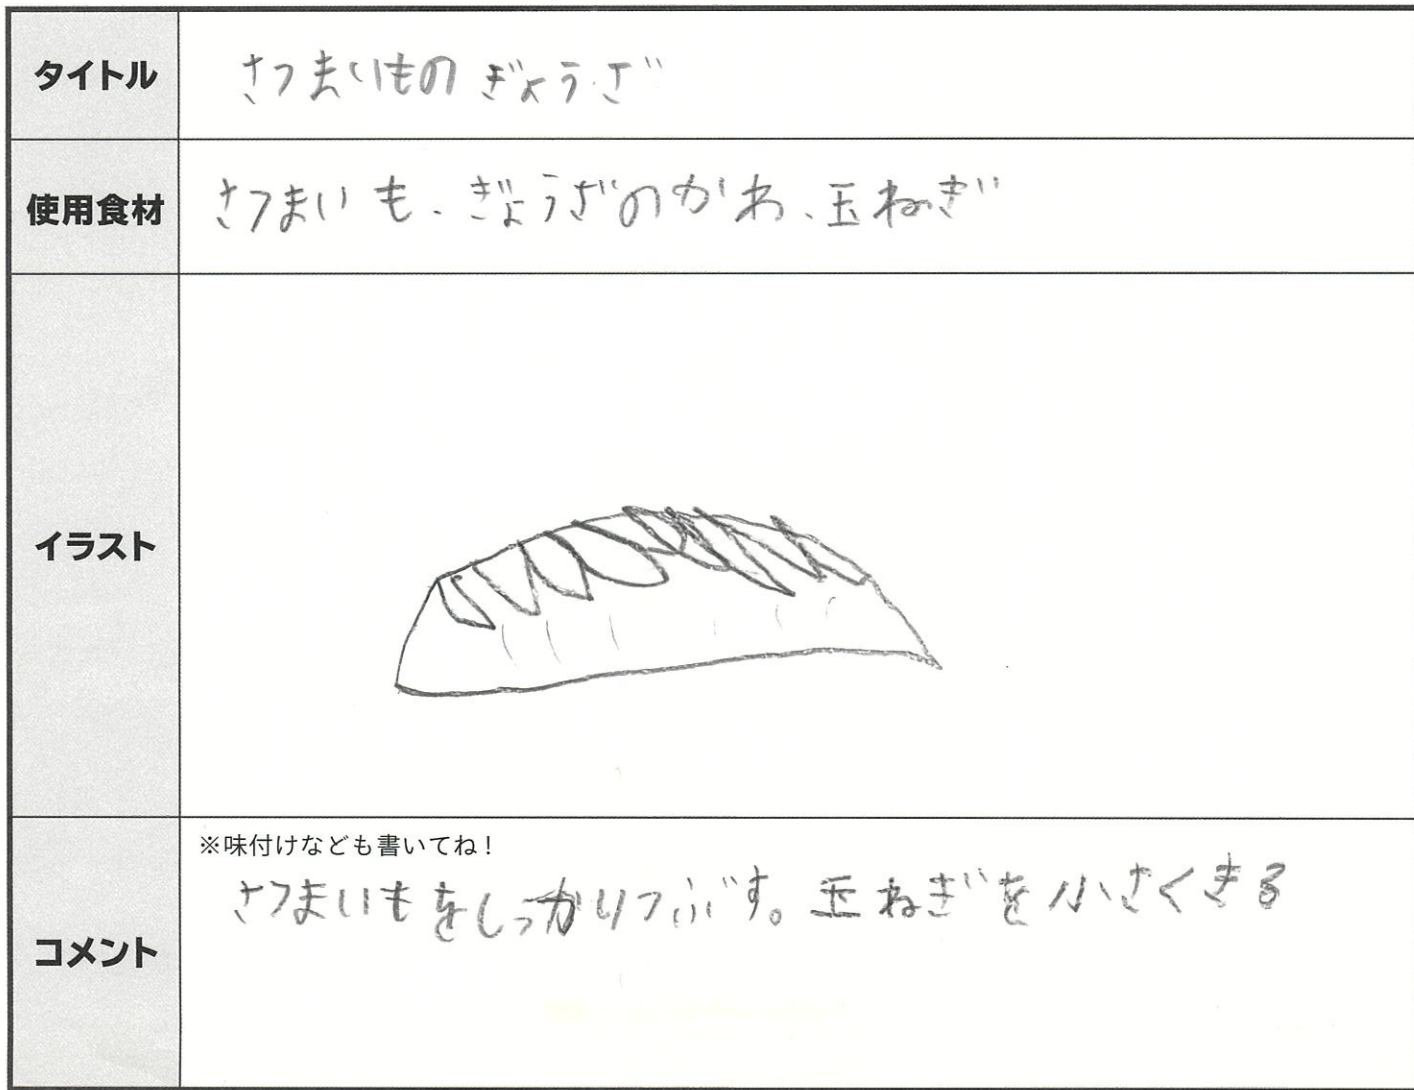 タイトル
さつまいものぎょうざ
使用食材
さつまいも、ぎょうざのかわ、玉ねぎ
イラスト
コメント
※味付けなども書いてね！
さつまいもをしっかりつぶす。玉ねぎを小さくきる